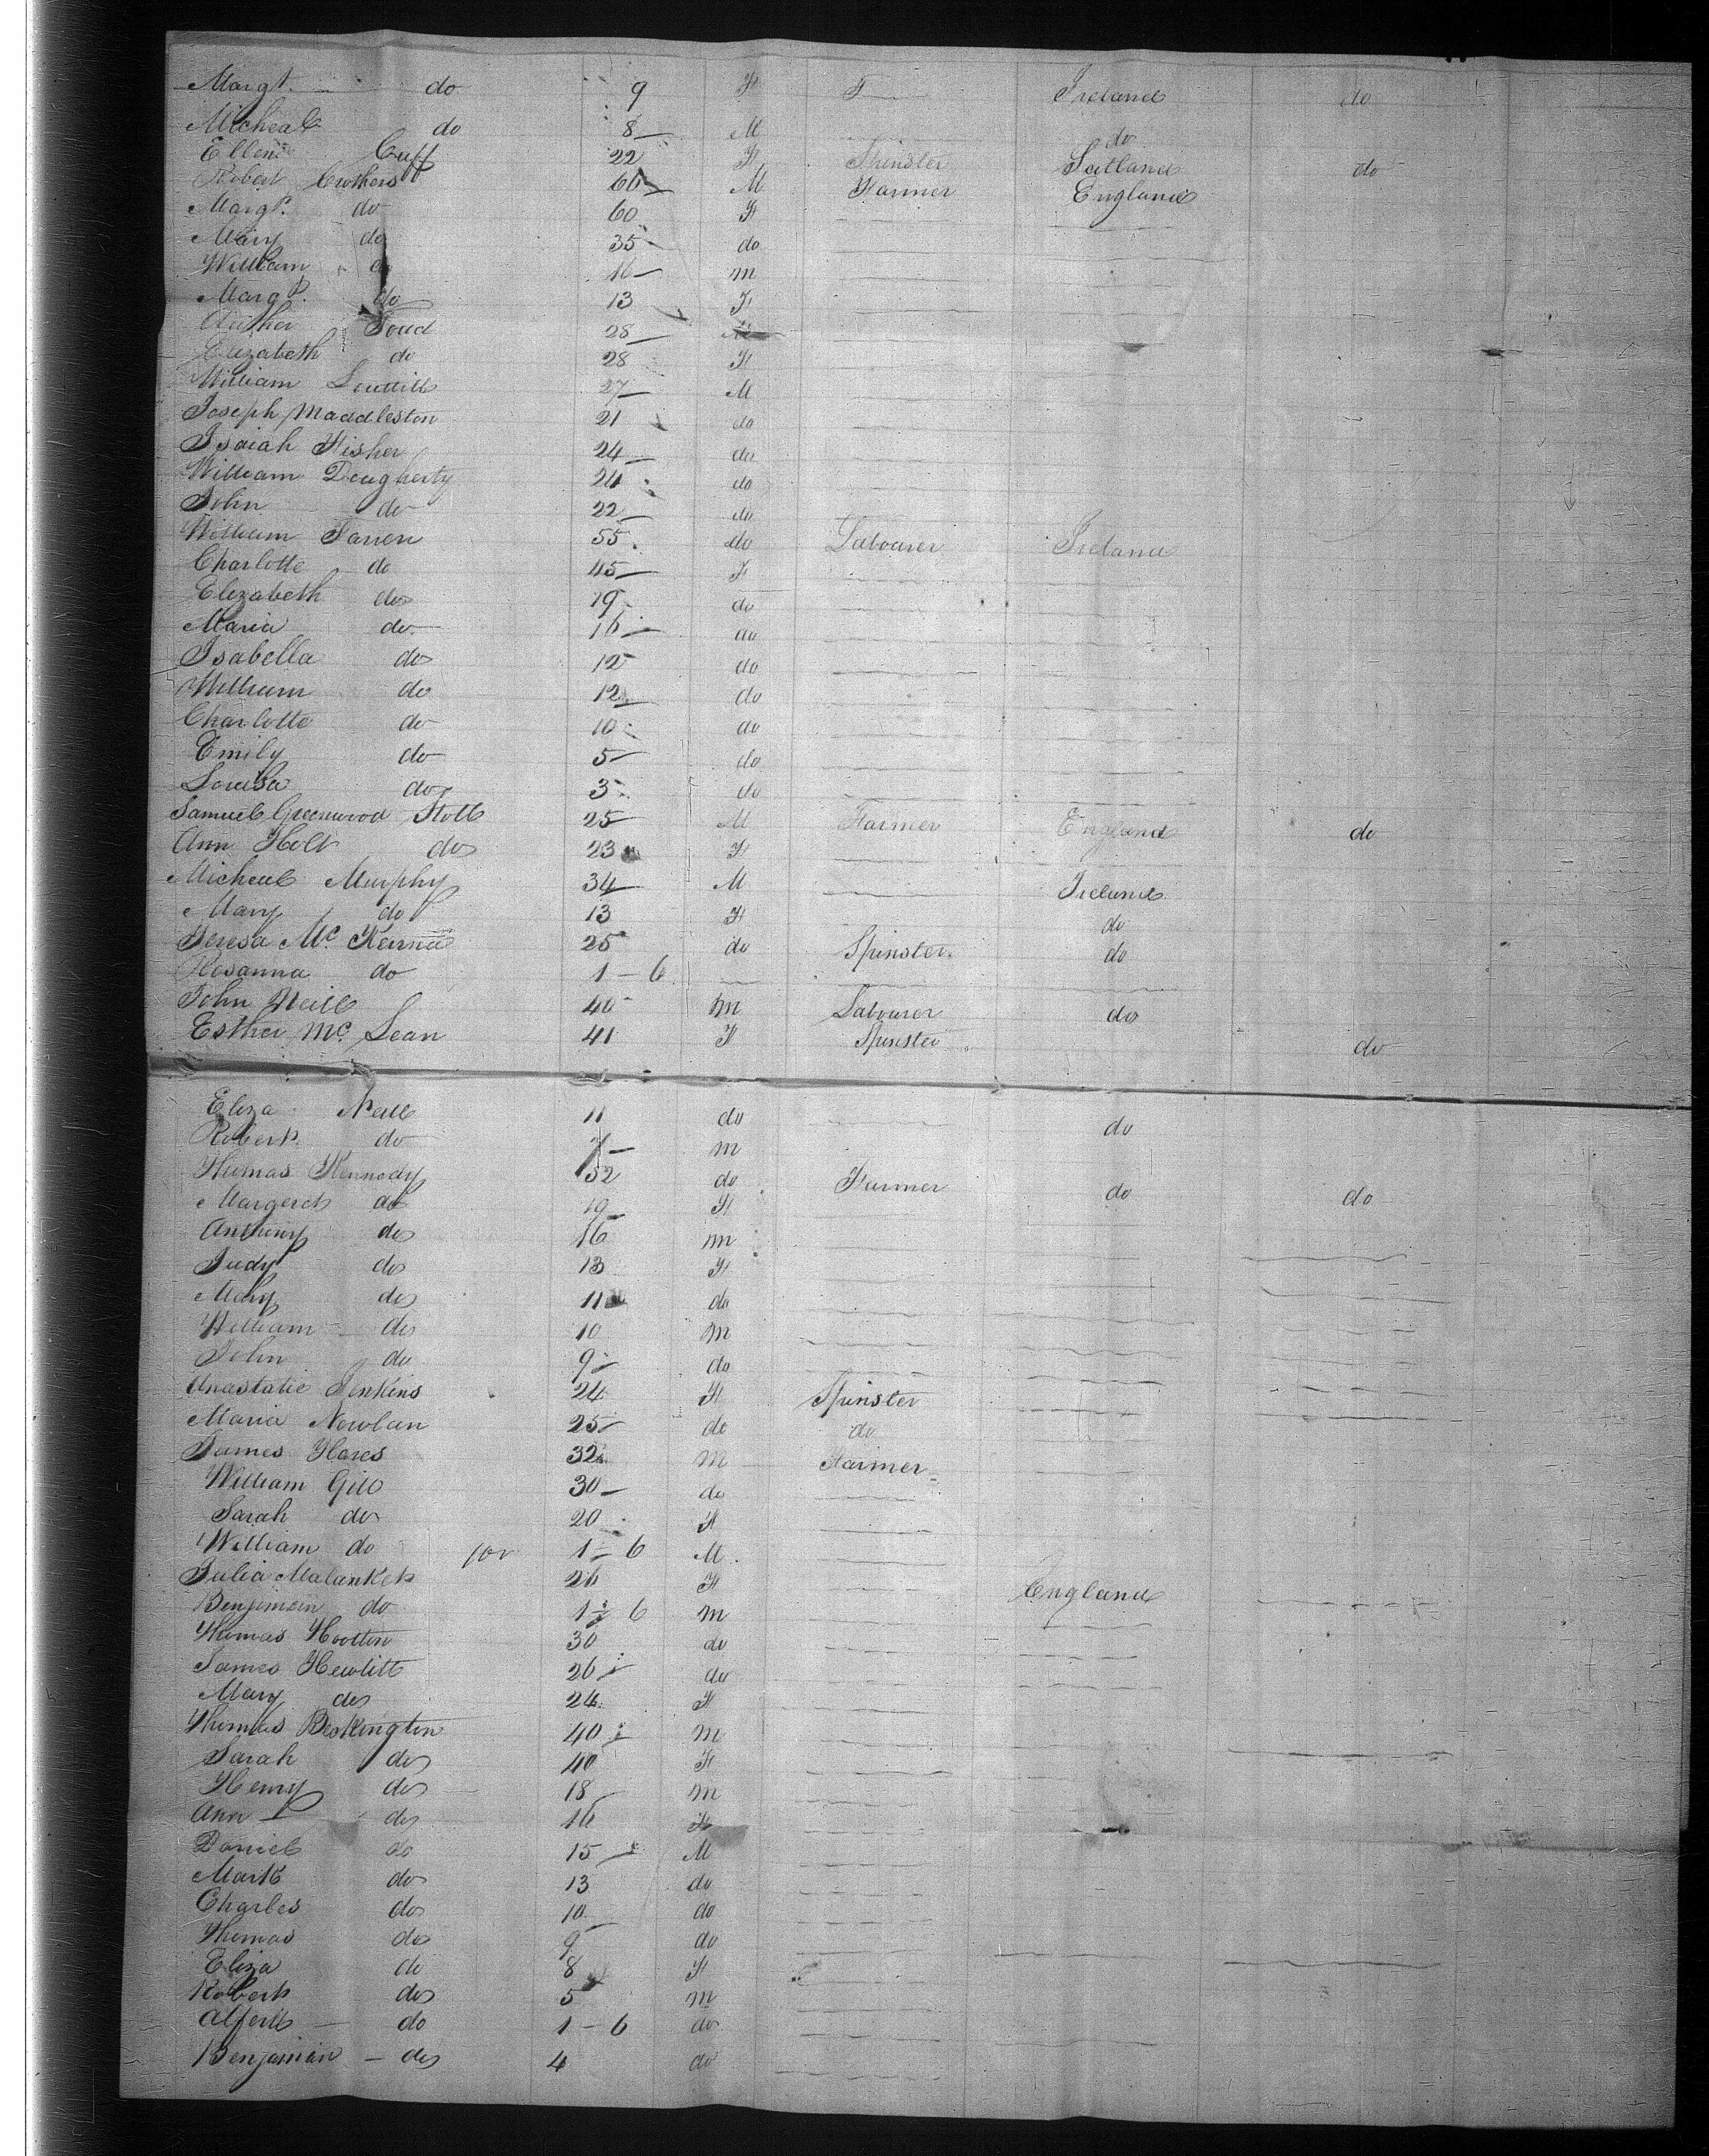 Margt. do 9 F F Ireland do
Micheal do 8 M do
Ellen Cuff 22 F Spinster Scotland do
Robert Crothers 60 M Farmer England
Margt. do 60 F
Mary do 35 do
William do 16 m
Margt. do 13 F
Arther Foud 28
Elizabeth do 28 F
William Louttill 27 M
Joseph Maddleston 21 do
Isaiah Fisher 24 do
William Dougherty 24 do
John do 22 do
William Farren 55 do Labourer Ireland
Charlotte do 45 F
Elizabeth do 19 do
Maria do 16 do
Isabella do 12 do
William do 12 do
Charlotte do 10 do
Emily do 5 do
Louisa do 3 do
Samuel Greenwood Holt 25 M Farmer England do
Ann Holt do 23 F
Micheal Murphy 34 M Ireland
Mary do 13 F do
Teresa Mc Kenna 25 do Spinster do
Rosanna do 1-6
John Neill 40 m Labourer do
Esther Mc Lean 41 F Spinster do
Eliza Neill 11 do do
Robert do 7 m
Thomas Kennedy 52 do Farmer do do
Margeret do 19 F
Anthony do 16 m
Judy do 13 F
Mary do 11 do
William do 10 m
John do 9 do
Anastatie Jenkins 24 F Spinster
Maria Nowlan 25 do do
James Hares 32 m Farmer
William Gill 30 do
Sarah do 20 F
William do 1-6 M
Julia Malanket 26 F England
Benjimein do 1-6 m
Thomas Hootten 30 do
James Hewlitt 26 do
Mary do 24 F
Thomas Beskington 40 m
Sarah do 40 F
Henry do 18 m
Ann do 16 F
Daniel do 15 M
Mark do 13 do
Charles do 10 do
Thomas do 9 do
Eliza do 8 F
Robert do 5 m
Alferd do 1-6 do
Benjamin do 4 do